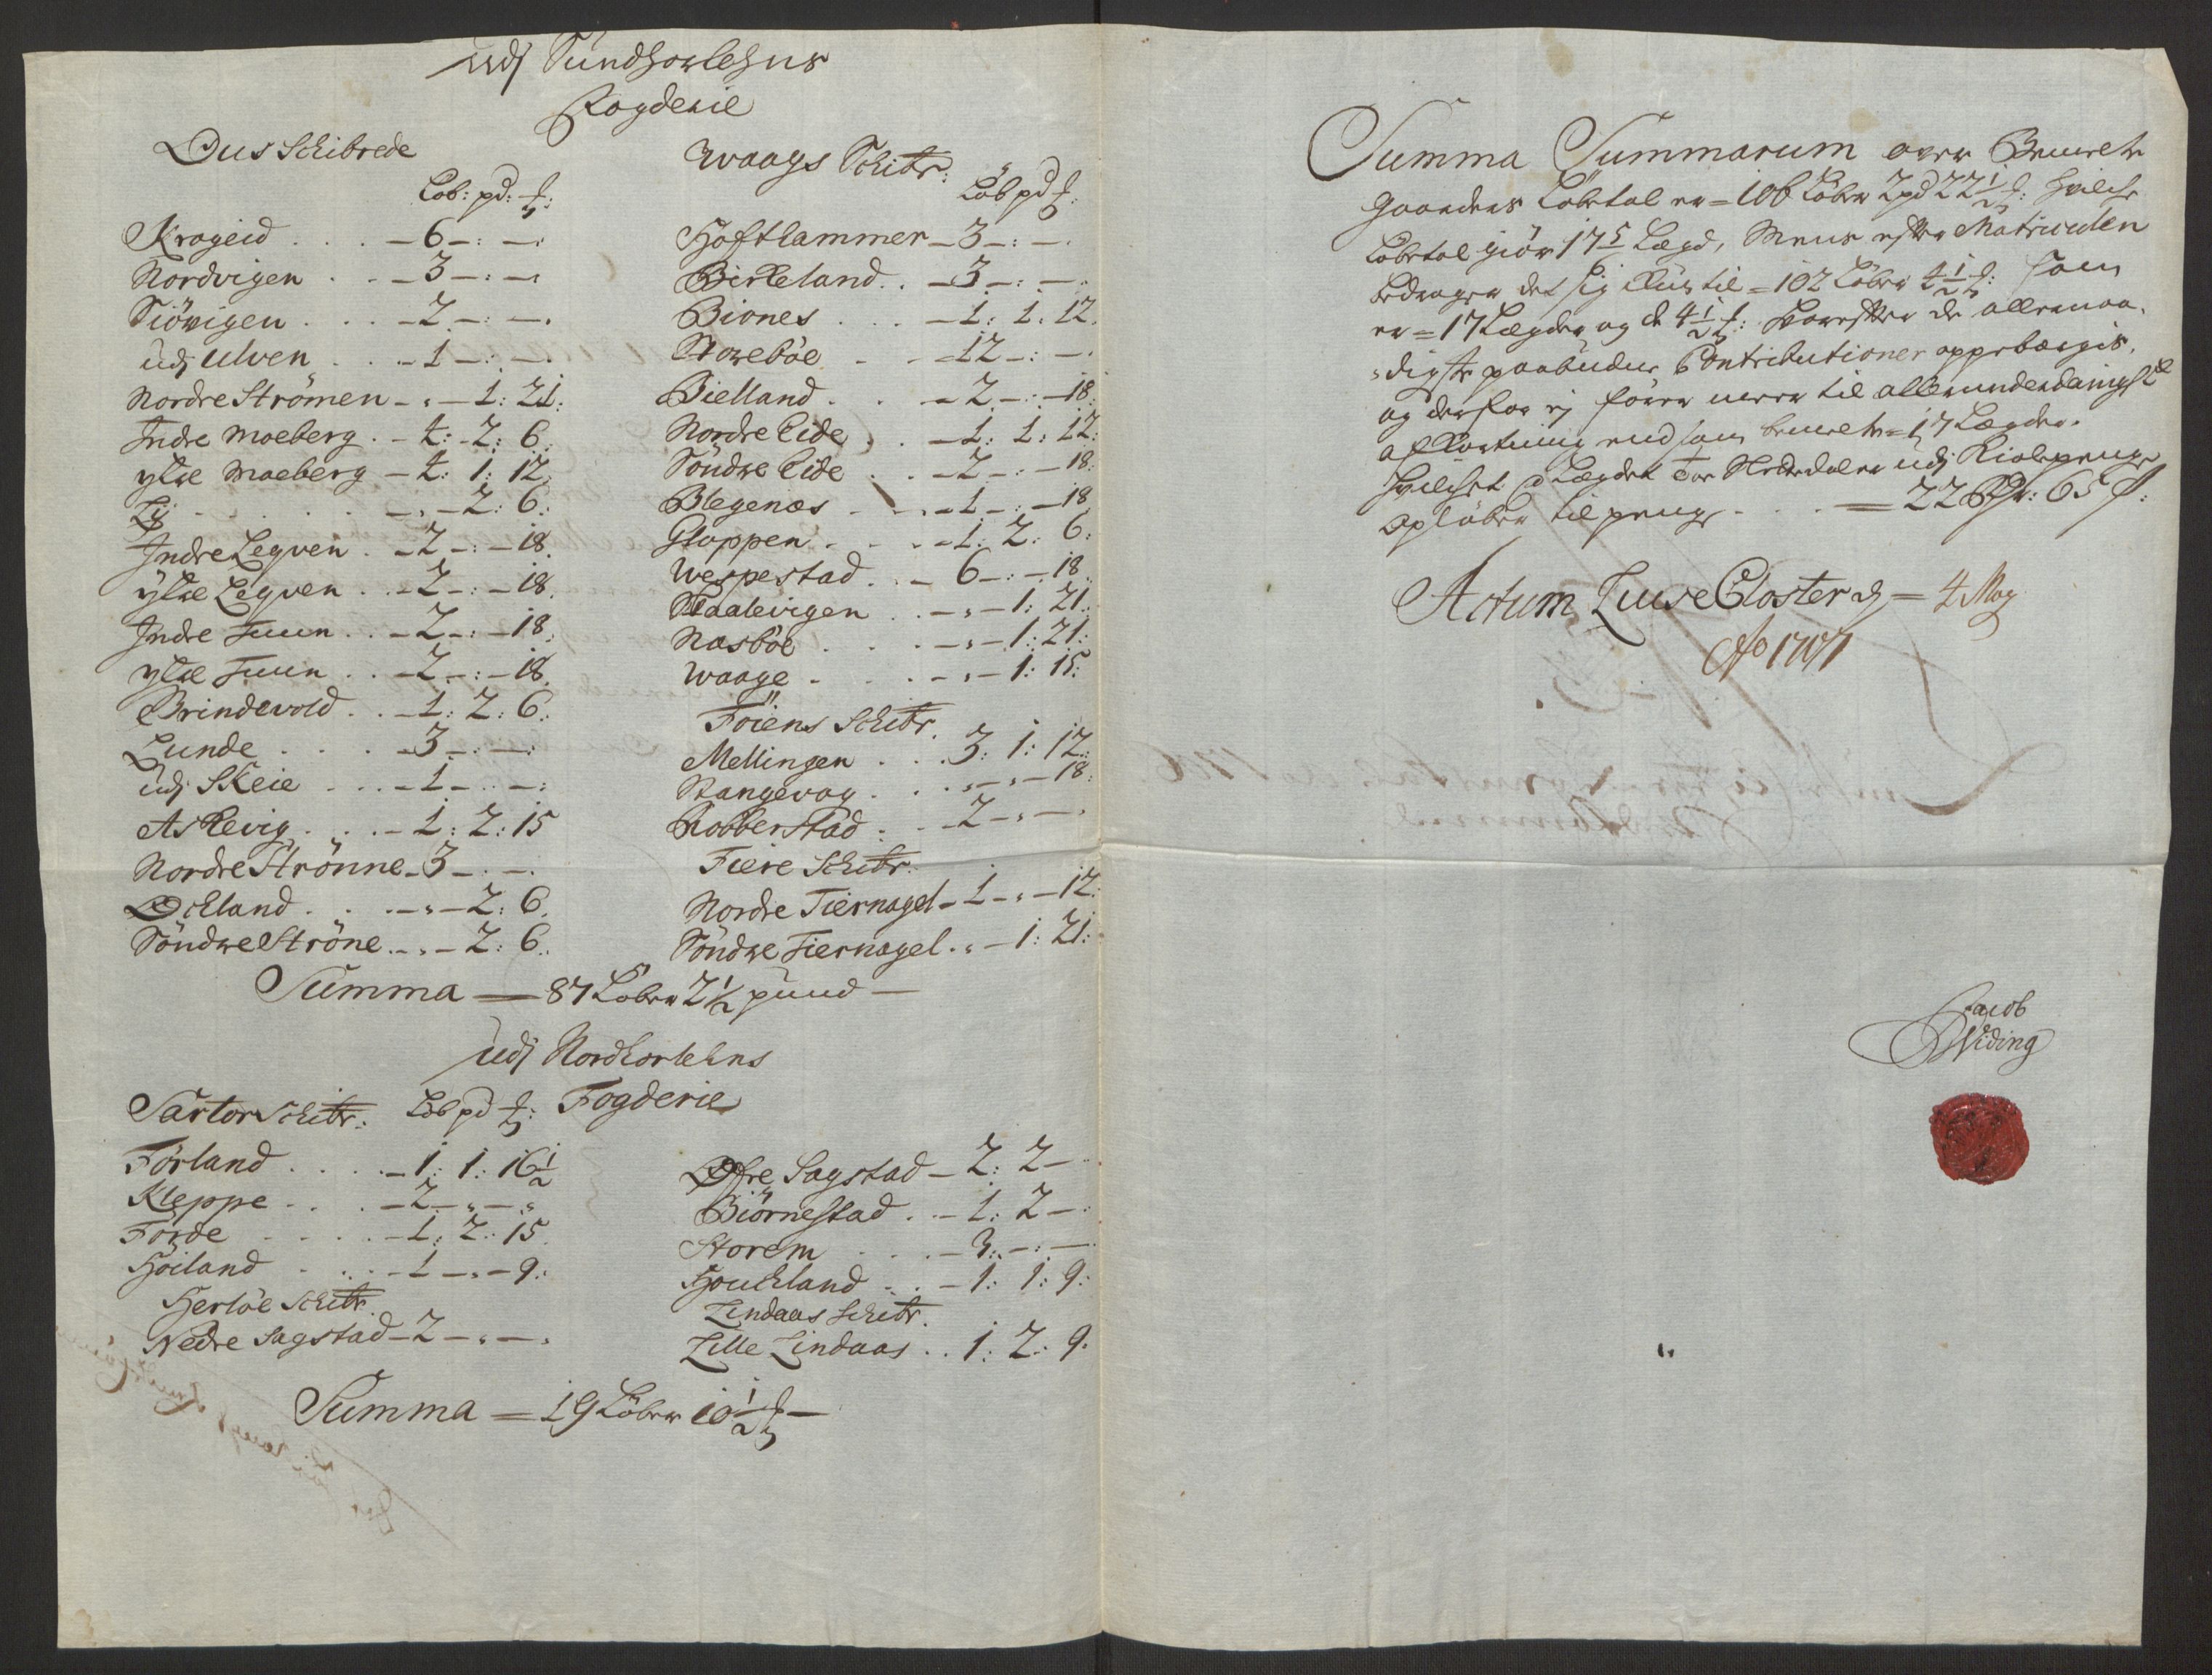 udj Sundhorlehns
Fogderie
Ous Schibrede
Løb: pd: ℔:
Krogeid . . . – 6 – : – :
Nordvigen . . – 3 – : –
Siövigen . . . – 2 – : – .
udj Ulven . . . – 1 – : – .
Nordre Strömen – . – 1: 21:
Indre Moeberg . – 4: – 2: 6.
ytre Moeberg – 4: 1: 12.
Ly . . . . . – . – 2: 6:
Indre Legven . – 2 – : – 18.
ytre Legven . . – 2 – : – 18.
Indre Tuun . . – 2 – : – 18.
ytre Tuun . . – 2 – : – 18.
Brindevold . . – 1: 2: 6:
Lunde . . . . – 3 – : – :
udj Skeie . . . – 1 – . – :
Askevig . . . – 1: 2: 15
Nordre Strönne – 3 – . – .
Ockland . . . – . – 2: 6.
Söndre Ströne . – . – 2: 6.
Waags Schibr:
Löb pd ℔:
Hoftlammer – 3 – : – .
Birkeland . . – 3 – : – .
Biones . . . – 1: 1. 12.
Storeböe . . – 12 – : – .
Bielland . . – 2 – : – 18:
Nordre Eide . . – 1: 1: 12:
Söndre Eide . . – 2 – : – 18:
Blegenæs . . . – 1 – : – 18
Gloppen . . . – 1: 2: 6:
Wespestad . . – 6 – : – 18.
Staalevigen . . – . – 1: 21.
Nasböe . . . – . – 1: 21:
Waage . . . – . – 1: 15:
Föiens Schibr.
Mellingen . . . 3: 1: 12:
Stangevog . . . . – . – 18:
Robberstad . . – 2 – . – .
Fiere Schibr.
Nordre Tiernagel – 1 – . – 12:
Söndre Tiernagel . . – 1: 21:
Summa – 87 Löber 2½ pund –
udj Nordhorlehns
Fogderie
Sartor Schibr: Löb pd ℔:
Förland . . . . – 1: 1: 16½
Kleppe . . . – 2 – . – .
Förde . . . . – 1: 2: 15.
Höiland . . . – 1 – . – 9:
Herlöe Schibr
Nedre Sagstad – 2 – . – .
Øfre Sagstad – 2: 2 –
Biörnestad . . – 1: 2 – :
Storem . . . – 3: – : – :
Houckland . . – 1: 1: 9:
Lindaas Schibr.
Lille Lindaas . . 1: 2: 9.
Summa = 19 Löber 10½ ℔ –
Summa Summarum over Bemelte
Gaarders Löbetal er = 106 Löber 2 pd 22½ ℔: hvilche
Löbetal giör 17 5/ Lægd, Mens efter Matriculen
bedrager det sig kun til = 102 Löber 4½ ℔: som
er = 17 Lægder og de 4½ ℔: hvorefter de allernaa-
digste paabudne Contributioner oppebærgis,
og derfor ej förer meere til allerunderdanigste
afkortning end som bemelte = 17 Lægder.
hvilchet Lægdet udj
opløber til penge . . . = 22 Rdr: 65 s:
Actum Luuse Closter d – 4 May
Ao 1707
Jacob
Widing